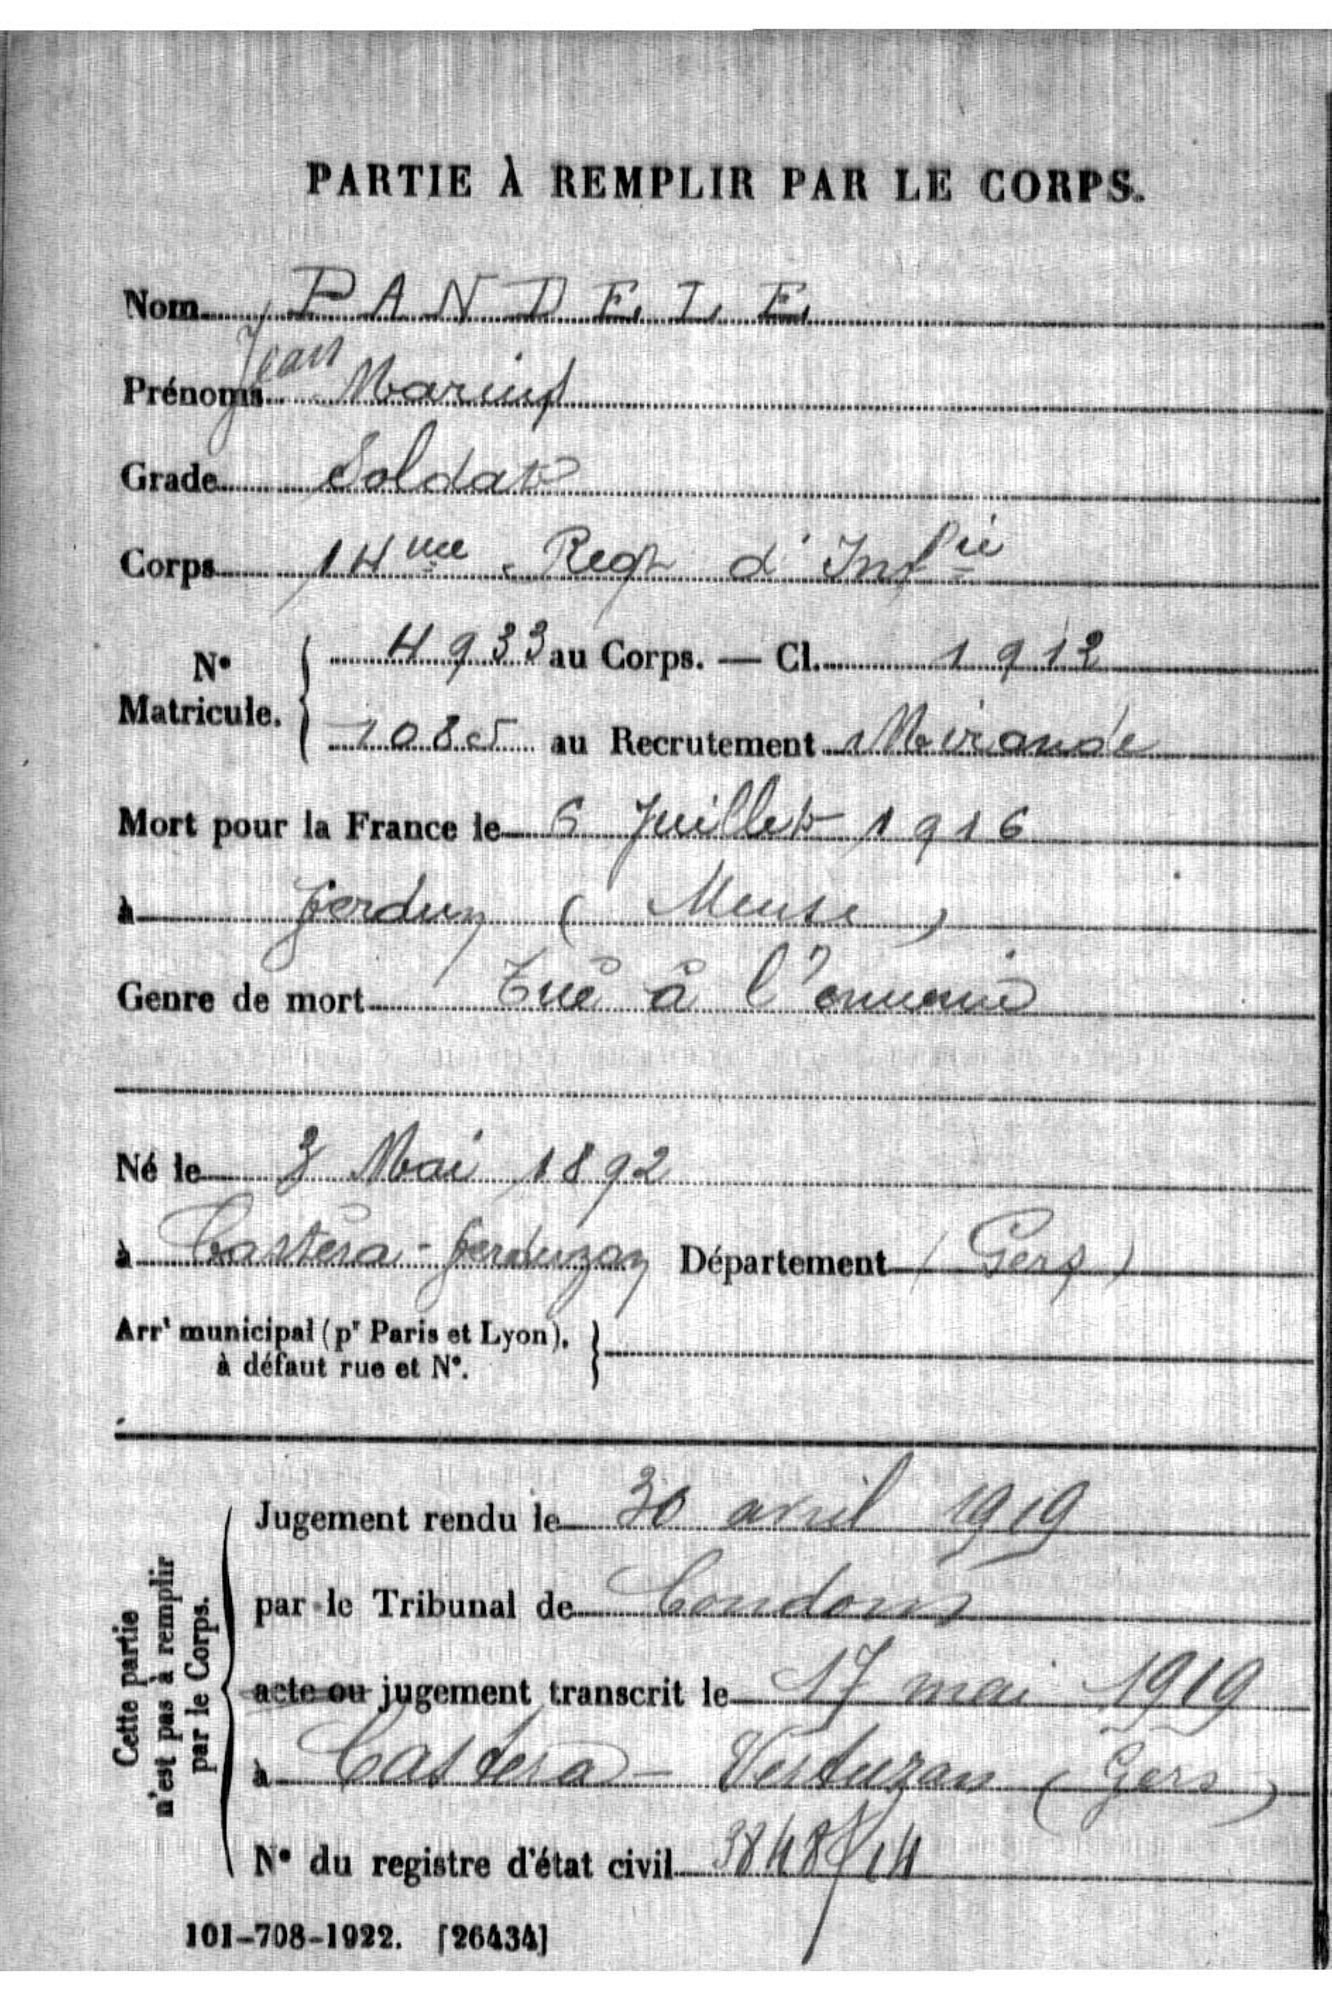 PARTIE À REMPLIR PAR LE CORPS.
Nom PANDELE
Prénoms Jean Marius
Grade Soldat
Corps 14me Regt d'Infie
N° Matricule. { 4933 au Corps. — Cl. 1912
1085 au Recrutement Mirande
Mort pour la France le 6 Juillet 1916
à Verdun (Meuse)
Genre de mort Tué à l'ennemi
Né le 3 Mai 1892
à Castéra-Verduzan Département (Gers)
Arrt municipal (pr Paris et Lyon),
à défaut rue et N°.
Cette partie n'est pas à remplir par le Corps.
Jugement rendu le 30 avril 1919
par le Tribunal de Condom
acte ou jugement transcrit le 17 mai 1919
à Castera-Verduzan (Gers)
N° du registre d'état civil 3848/14
101-708-1922. [26434]